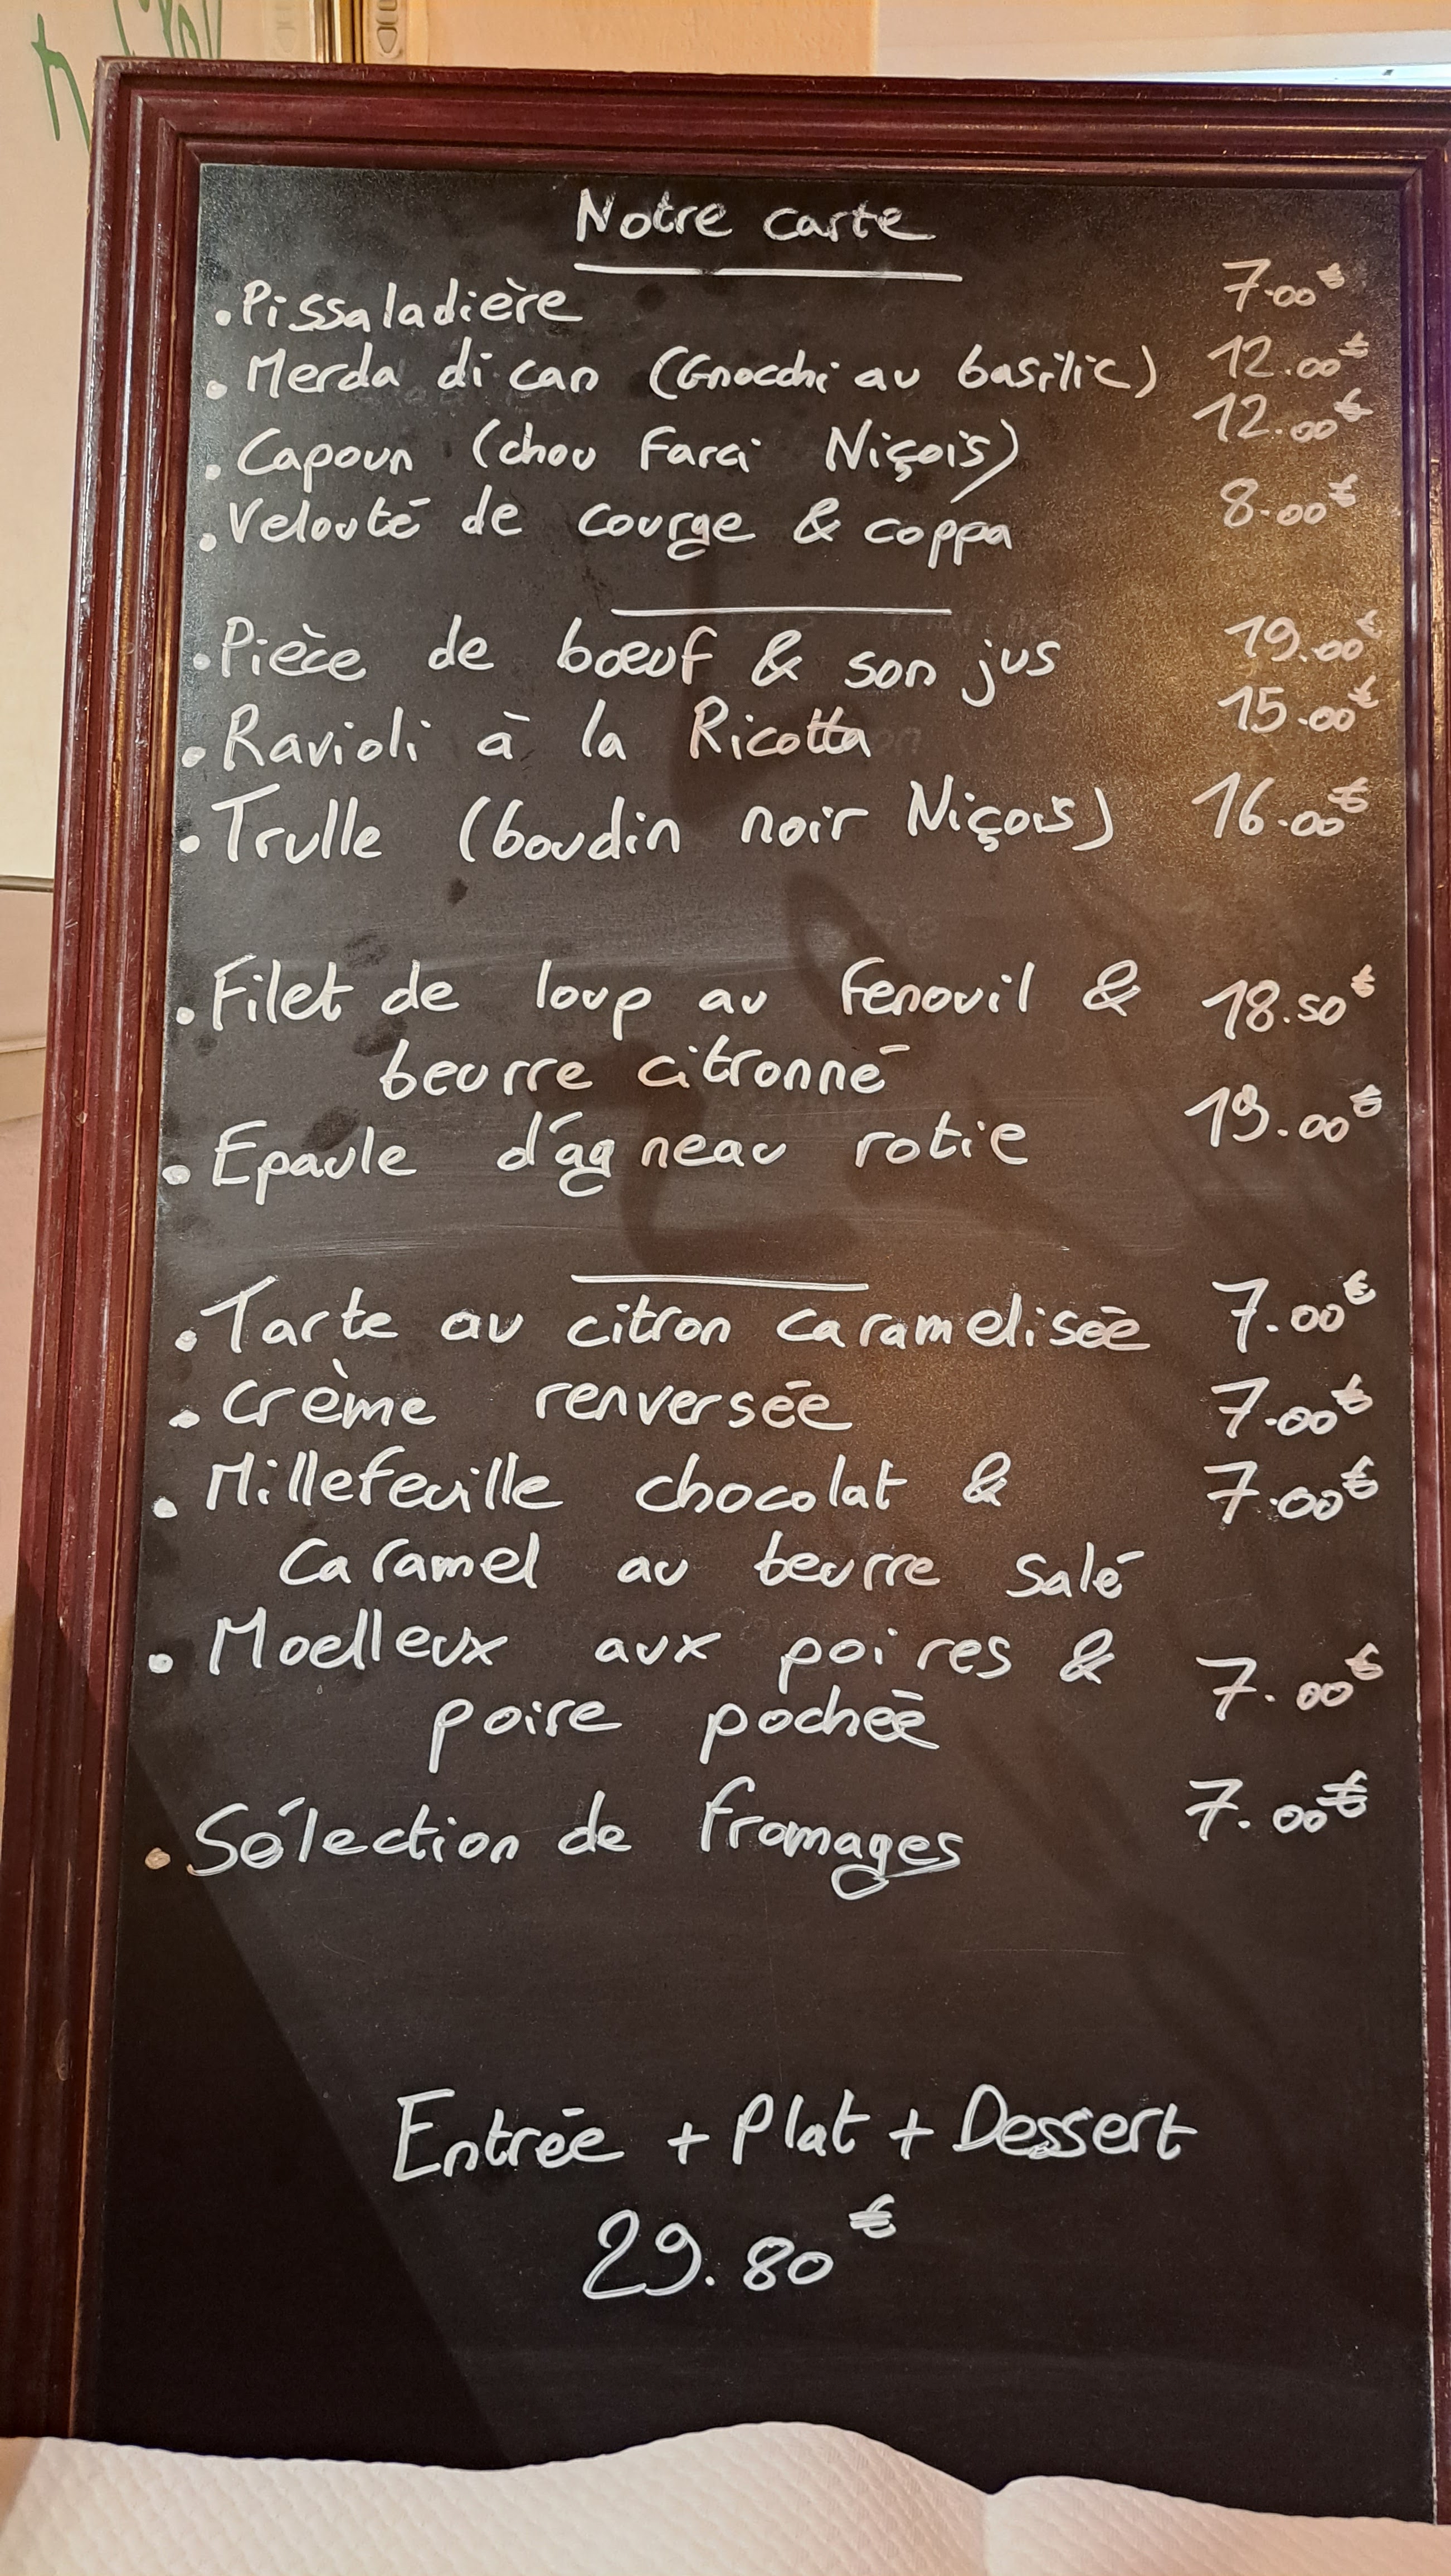 Notre carte
.Pissaladière 7.00€
. Merda di can (Gnocchi au basilic) 12.00€
. Capoun (chou Farci Niçois) 12.00€
. Velouté de courge & coppa 8.00€
. Pièce de bœuf & son jus 19.00€
. Ravioli à la Ricotta 15.00€
. Trulle (boudin noir Niçois) 16.00€
. Filet de loup au Fenouil & 18.50€
beurre citronné
. Epaule d'agneau rotie 19.00€
. Tarte au citron caramelisée 7.00€
. Crème renversée 7.00€
. Millefeuille chocolat & 7.00€
Caramel au beurre salé
. Moelleux aux poires & 7.00€
poire pochée
. Sélection de fromages 7.00€
Entrée + Plat + Dessert
29.80€